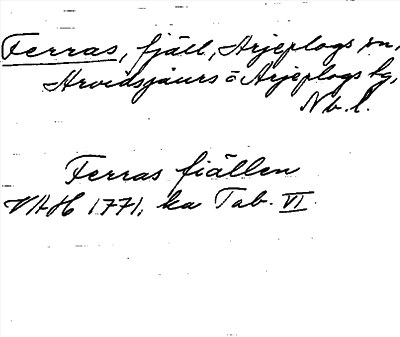 Ferras, fjäll, Arjeplogs sn,
Arvidsjaurs o Arjeplogs tg,
Nb. l.
Ferras fiällen
VAH 1771, ka Tab. VI.